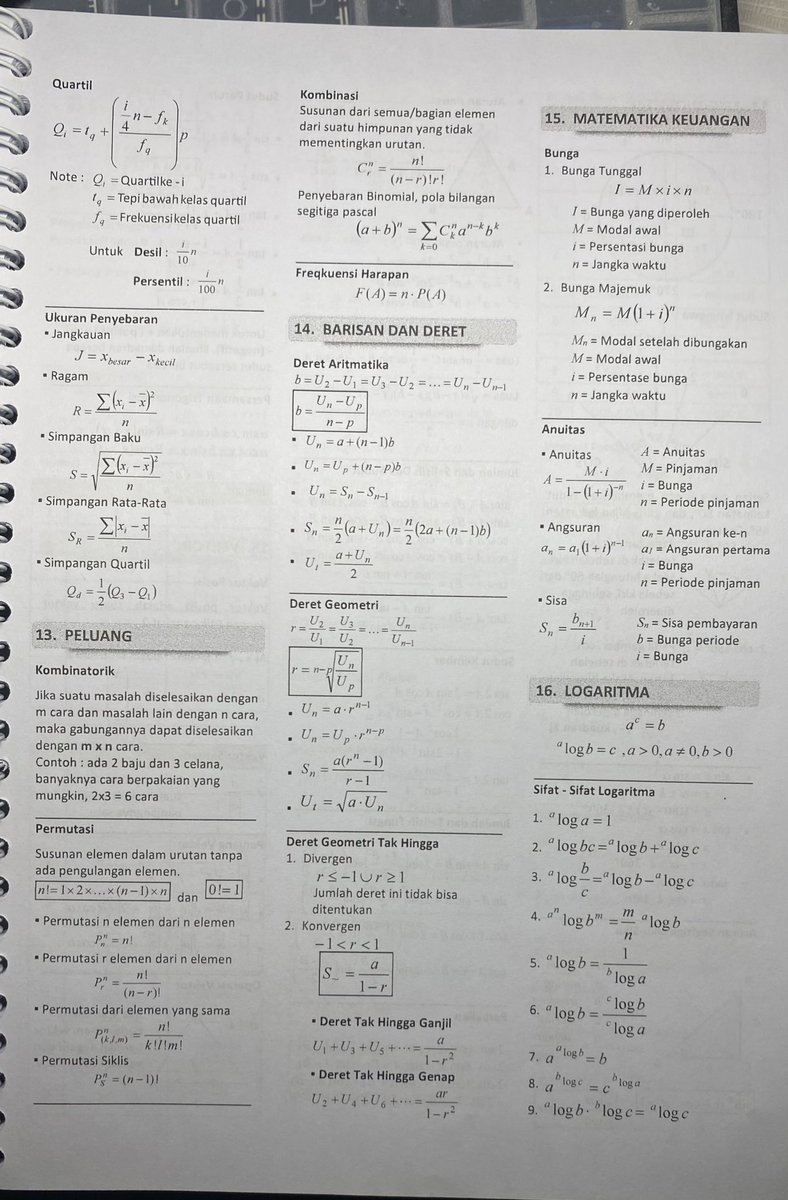 Quartil
Q_i = t_q + ((i/4 n − f_k) / f_q) p
Note : Q_i = Quartilke - i
t_q = Tepi bawah kelas quartil
f_q = Frekuensi kelas quartil
Untuk Desil : i/10 n
Persentil : i/100 n
Ukuran Penyebaran
▪ Jangkauan
J = x_besar − x_kecil
▪ Ragam
R = ∑(x_i − x̅)² / n
▪ Simpangan Baku
S = √(∑(x_i − x̅)² / n)
▪ Simpangan Rata-Rata
S_R = ∑|x_i − x̅| / n
▪ Simpangan Quartil
Q_d = 1/2 (Q_3 − Q_1)
13. PELUANG
Kombinatorik
Jika suatu masalah diselesaikan dengan
m cara dan masalah lain dengan n cara,
maka gabungannya dapat diselesaikan
dengan m x n cara.
Contoh : ada 2 baju dan 3 celana,
banyaknya cara berpakaian yang
mungkin, 2x3 = 6 cara
Permutasi
Susunan elemen dalam urutan tanpa
ada pengulangan elemen.
n! = 1×2×...×(n−1)×n dan 0! = 1
▪ Permutasi n elemen dari n elemen
P_n^n = n!
▪ Permutasi r elemen dari n elemen
P_r^n = n! / (n−r)!
▪ Permutasi dari elemen yang sama
P_(k,l,m)^n = n! / k!l!m!
▪ Permutasi Siklis
P_S^n = (n−1)!
Kombinasi
Susunan dari semua/bagian elemen
dari suatu himpunan yang tidak
mementingkan urutan.
C_r^n = n! / (n−r)!r!
Penyebaran Binomial, pola bilangan
segitiga pascal
(a+b)^n = ∑_{k=0} C_k^n a^{n−k} b^k
Freqkuensi Harapan
F(A) = n · P(A)
14. BARISAN DAN DERET
Deret Aritmatika
b = U_2 − U_1 = U_3 − U_2 = ... = U_n − U_{n−1}
b = (U_n − U_p) / (n − p)
▪ U_n = a + (n−1)b
▪ U_n = U_p + (n−p)b
▪ U_n = S_n − S_{n−1}
▪ S_n = n/2 (a + U_n) = n/2 (2a + (n−1)b)
▪ U_t = (a + U_n) / 2
Deret Geometri
r = U_2/U_1 = U_3/U_2 = ... = U_n/U_{n−1}
r = ^{n−p}√(U_n / U_p)
▪ U_n = a · r^{n−1}
▪ U_n = U_p · r^{n−p}
▪ S_n = a(r^n − 1) / (r − 1)
▪ U_t = √(a · U_n)
Deret Geometri Tak Hingga
1. Divergen
r ≤ −1 ∪ r ≥ 1
Jumlah deret ini tidak bisa
ditentukan
2. Konvergen
−1 < r < 1
S_~ = a / (1 − r)
▪ Deret Tak Hingga Ganjil
U_1 + U_3 + U_5 + ··· = a / (1 − r²)
▪ Deret Tak Hingga Genap
U_2 + U_4 + U_6 + ··· = ar / (1 − r²)
15. MATEMATIKA KEUANGAN
Bunga
1. Bunga Tunggal
I = M × i × n
I = Bunga yang diperoleh
M = Modal awal
i = Persentasi bunga
n = Jangka waktu
2. Bunga Majemuk
M_n = M(1 + i)^n
M_n = Modal setelah dibungakan
M = Modal awal
i = Persentase bunga
n = Jangka waktu
Anuitas
▪ Anuitas
A = M · i / (1 − (1 + i)^{−n})
A = Anuitas
M = Pinjaman
i = Bunga
n = Periode pinjaman
▪ Angsuran
a_n = a_1 (1 + i)^{n−1}
a_n = Angsuran ke-n
a_1 = Angsuran pertama
i = Bunga
n = Periode pinjaman
▪ Sisa
S_n = b_{n+1} / i
S_n = Sisa pembayaran
b = Bunga periode
i = Bunga
16. LOGARITMA
a^c = b
^a log b = c , a > 0, a ≠ 0, b > 0
Sifat - Sifat Logaritma
1. ^a log a = 1
2. ^a log bc = ^a log b + ^a log c
3. ^a log b/c = ^a log b − ^a log c
4. ^{a^n} log b^m = m/n ^a log b
5. ^a log b = 1 / ^b log a
6. ^a log b = ^c log b / ^c log a
7. a^{^a log b} = b
8. a^{^b log c} = c^{^b log a}
9. ^a log b · ^b log c = ^a log c